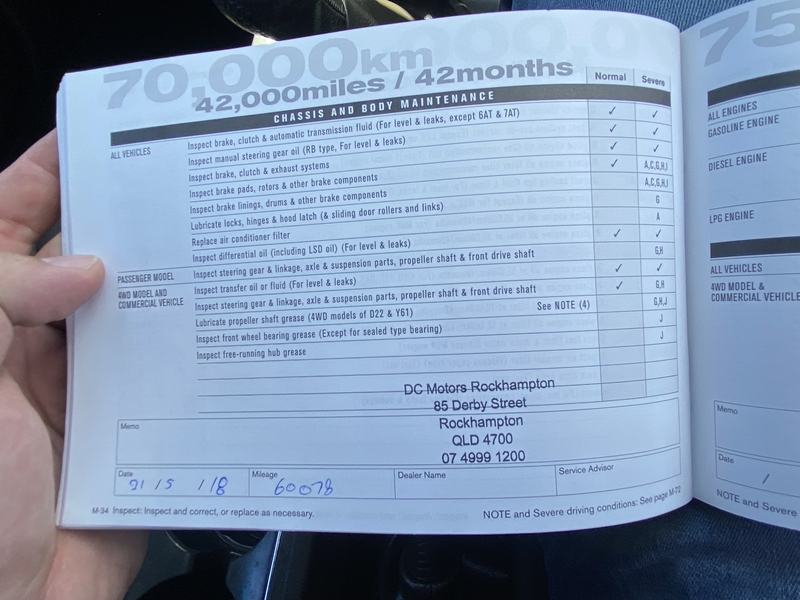 70,000km
42,000miles / 42months
CHASSIS AND BODY MAINTENANCE
Normal Severe
ALL VEHICLES
Inspect brake, clutch & automatic transmission fluid (For level & leaks, except 6AT & 7AT) ✓ ✓
Inspect manual steering gear oil (RB type, For level & leaks) ✓ ✓
Inspect brake, clutch & exhaust systems ✓ ✓
Inspect brake pads, rotors & other brake components ✓ A,C,G,H,I
Inspect brake linings, drums & other brake components A,C,G,H,I
Lubricate locks, hinges & hood latch (& sliding door rollers and links) G
Replace air conditioner filter A
Inspect differential oil (including LSD oil) (For level & leaks) ✓ ✓
PASSENGER MODEL
Inspect steering gear & linkage, axle & suspension parts, propeller shaft & front drive shaft G,H
4WD MODEL AND
COMMERCIAL VEHICLE
Inspect transfer oil or fluid (For level & leaks) ✓ ✓
Inspect steering gear & linkage, axle & suspension parts, propeller shaft & front drive shaft ✓ G,H
Lubricate propeller shaft grease (4WD models of D22 & Y61) See NOTE (4) G,H,J
Inspect front wheel bearing grease (Except for sealed type bearing) J
Inspect free-running hub grease J
DC Motors Rockhampton
85 Derby Street
Rockhampton
QLD 4700
07 4999 1200
Memo
Date Mileage Dealer Name Service Advisor
/ 5 / 18 60078
M-34 Inspect: Inspect and correct, or replace as necessary.
NOTE and Severe driving conditions: See page M-72
75
ALL ENGINES
GASOLINE ENGINE
DIESEL ENGINE
LPG ENGINE
ALL VEHICLES
4WD MODEL &
COMMERCIAL VEHICLE
Memo
Date
/
NOTE and Severe